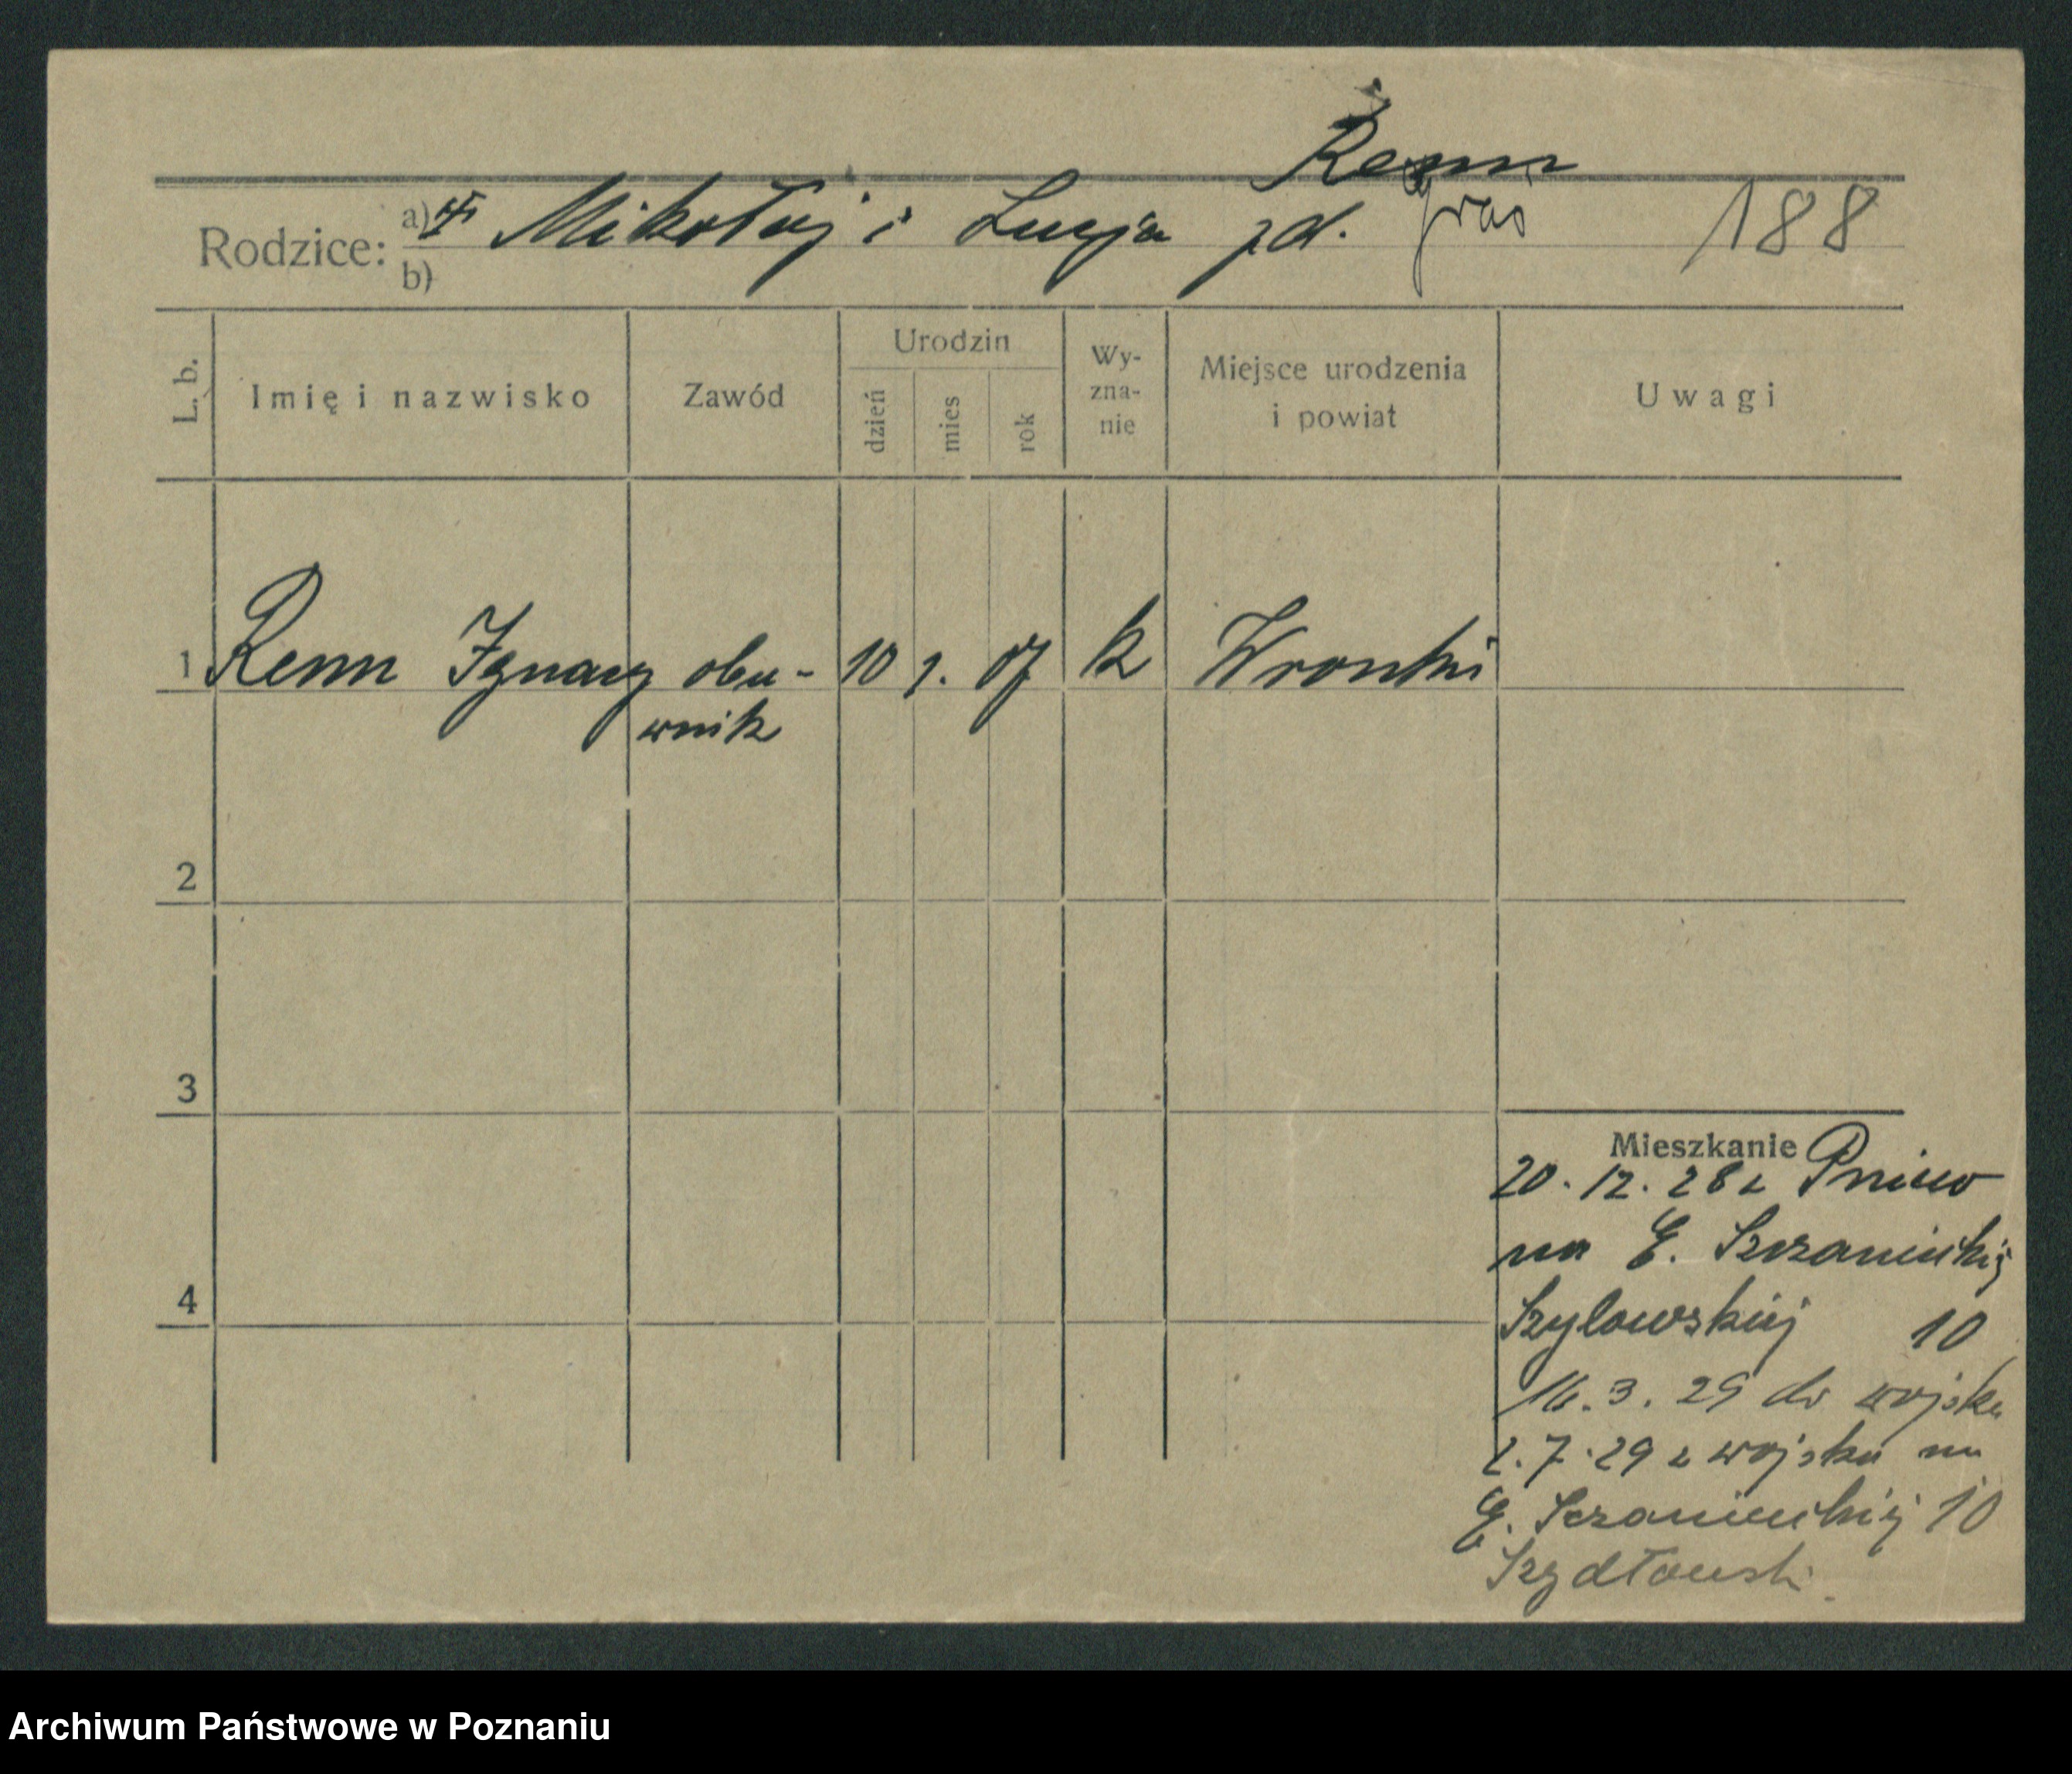 Renn
Rodzice: a) Mikołaj i Łucja zd. Graś 188
b)
L. b. Imię i nazwisko Zawód Urodzin dzień mies rok Wy-zna-nie Miejsce urodzenia i powiat Uwagi
1 Renn Ignacy obu- 10 1. 07 k Wronki
wnik
2
3
4
Mieszkanie
20.12.28 z Pniew
na E. Sczanieckiej
Szylowskiej 10
16.3.29 do wojska
2.7.29 z wojska na
E. Sczanieckiej 10
Szydłowski
Archiwum Państwowe w Poznaniu